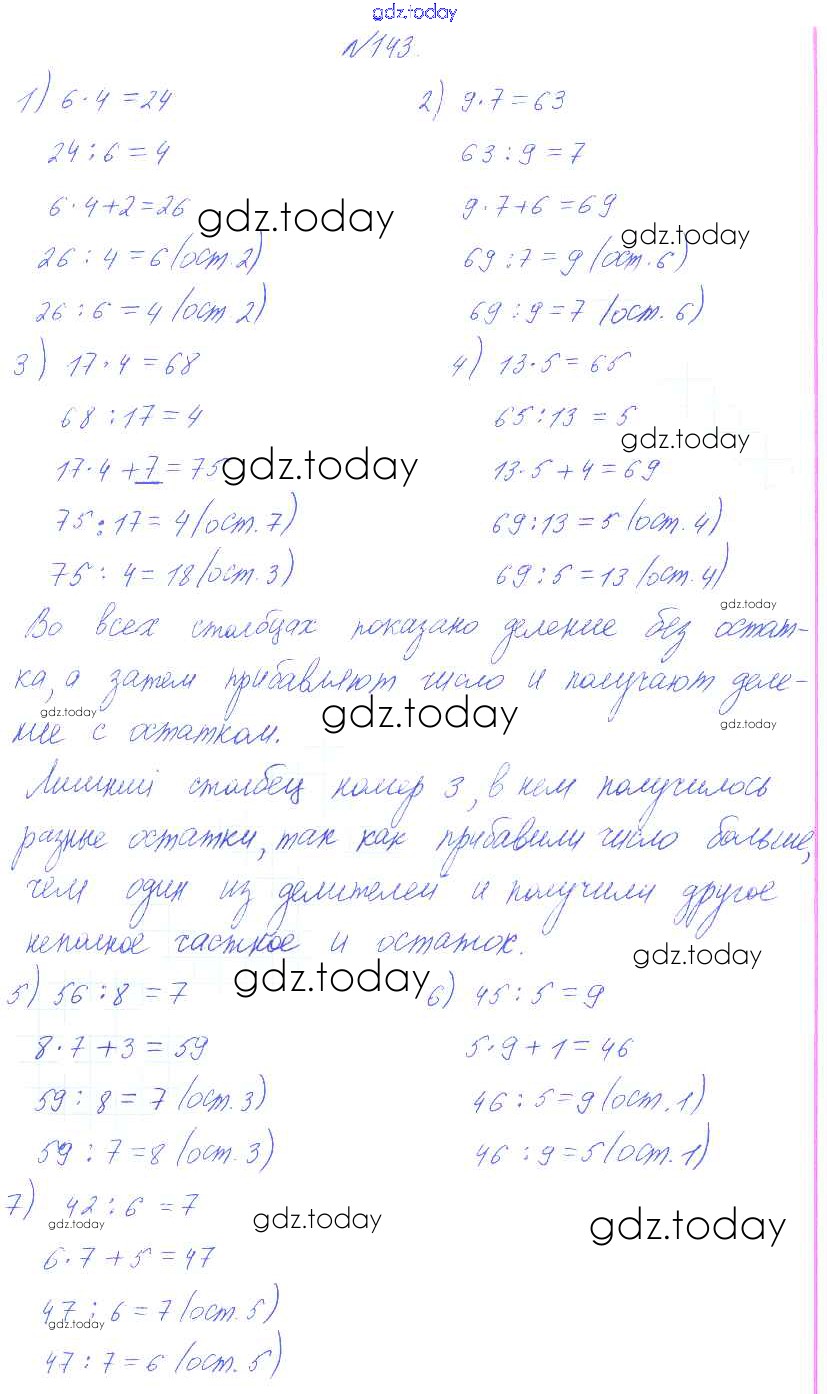 gdz.today
№143.
1) 6·4=24
24:6=4
6·4+2=26
26:4=6(ост.2)
26:6=4(ост 2)
2) 9·7=63
63:9=7
9·7+6=69
69:7=9(ост.6)
69:9=7(ост.6)
gdz.today
gdz.today
3) 17·4=68
68:17=4
17·4+7=75
75:17=4(ост.7)
75:4=18(ост.3)
4) 13·5=65
65:13=5
13·5+4=69
69:13=5(ост.4)
69:5=13(ост.4)
gdz.today
gdz.today
gdz.today
Во всех столбцах показано деление без остат-
ка, а затем прибавляют число и получают деле-
ние с остатком.
gdz.today
gdz.today
gdz.today
Лишний столбец номер 3, в нем получилось
разные остатки, так как прибавили число больше,
чем один из делителей и получили другое
неполное частное и остаток.
gdz.today
gdz.today
5) 56:8=7
8·7+3=59
59:8=7(ост.3)
59:7=8(ост.3)
6) 45:5=9
5·9+1=46
46:5=9(ост.1)
46:9=5(ост.1)
7) 42:6=7
6·7+5=47
47:6=7(ост.5)
47:7=6(ост.5)
gdz.today
gdz.today
gdz.today
gdz.today